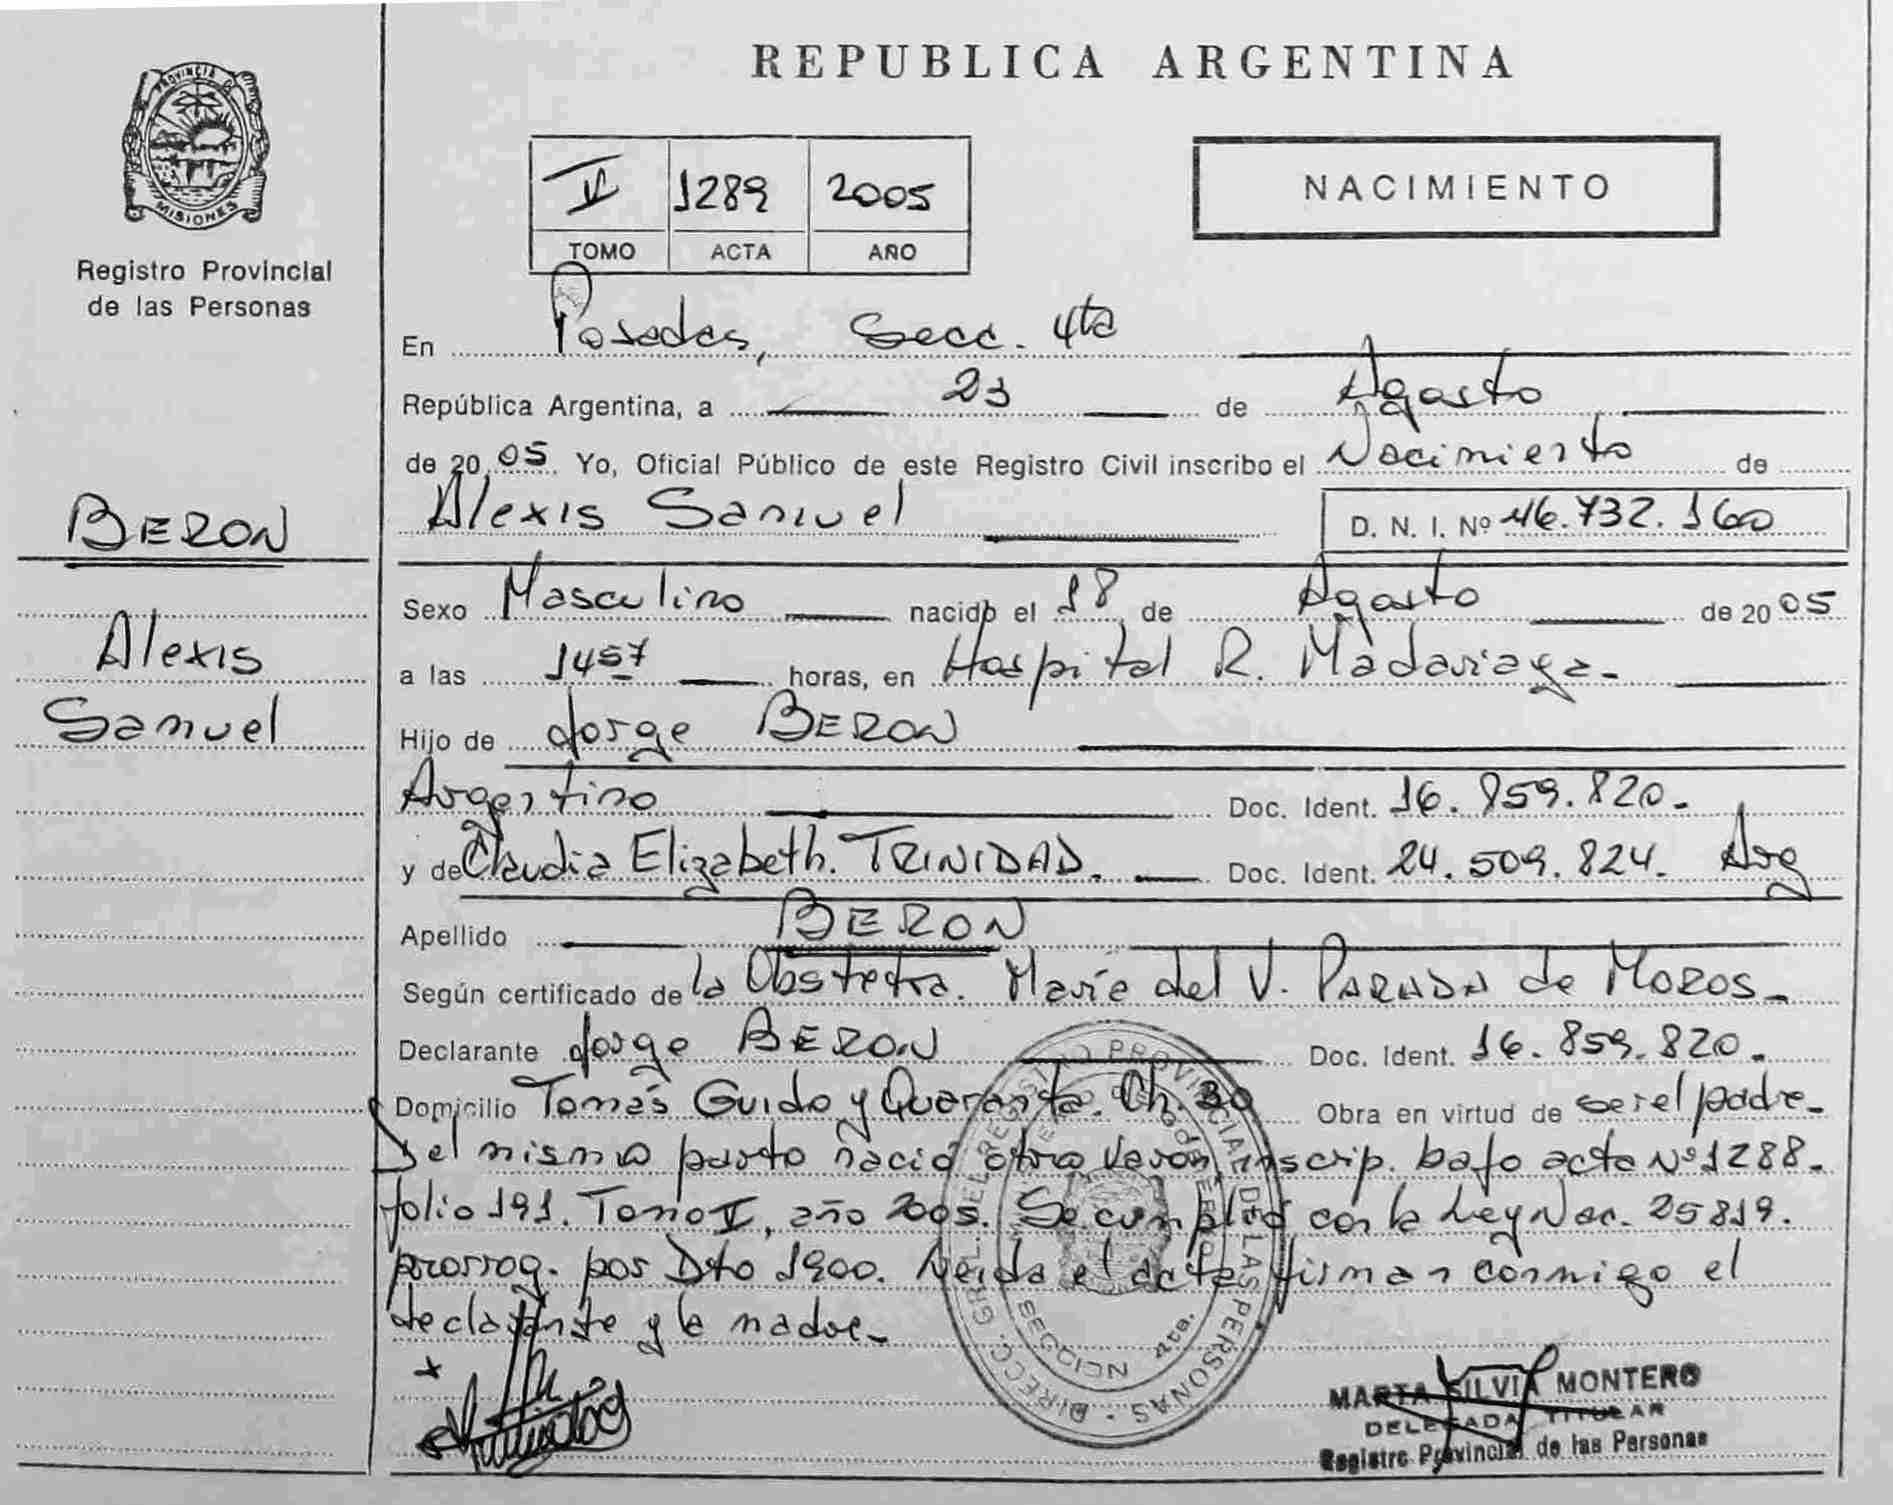 REPUBLICA ARGENTINA
PROVINCIA DE
MISIONES
Registro Provincial
de las Personas
V 1289 2005
TOMO ACTA AÑO
NACIMIENTO
En Posadas, Secc. 4ta
República Argentina, a 23 de Agosto
de 2005 Yo, Oficial Público de este Registro Civil inscribo el Nacimiento de
BERON
Alexis Samuel
D. N. I. Nº 46.732.160
Sexo Masculino nacido el 18 de Agosto de 2005
Alexis
a las 1457 horas, en Hospital R. Madariaga.
Samuel
Hijo de Jorge BERON
Argentino Doc. Ident. 16.859.820.
y de Claudia Elizabeth. TRINIDAD. Doc. Ident. 24.509.824. Arg
Apellido BERON
Según certificado de la Obstetra. María del V. PARADA de MOROS.
Declarante Jorge BERON Doc. Ident. 16.859.820.
Domicilio Tomás Guido y Quaranta. Ch. 30 Obra en virtud de ser el padre.
Del mismo parto nació otro varón inscrip. bajo acta Nº 1288.
folio 191. Tomo V, año 2005. Se cumplió con la Ley Nac. 25819.
prorrog. por Dto 1900. Leída el acta firman conmigo el
declarante y la madre.
DIRECC. GRL. DEL REGISTRO PROVINCIAL DE LAS PERSONAS
SECCION 4ta.
MARTA SILVIA MONTERO
DELEGADA TITULAR
Registro Provincial de las Personas